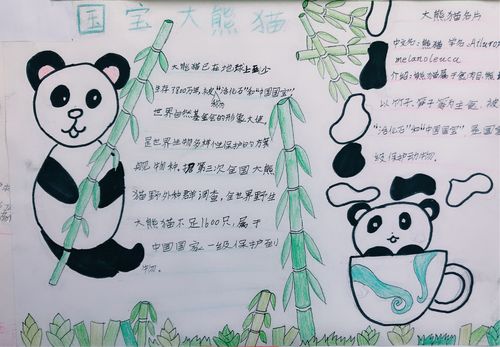 国宝大熊猫
大熊猫已在地球上至少
生存了800万年,被"活化石"和"中国国宝"
世界自然基金会的形象大使,
是世界生物多样性保护的
舰物种,据第三次全国大熊
猫野外种群调查,全世界野生
大熊猫不足1600只,属于
中国国家一级保护动
物。
大熊猫名片
中文名:熊猫 学名:Ailuropoda
melanoleuca
介绍:熊猫属于食肉目,熊
以竹子、笋子等为主食,被
"活化石"和"中国国宝",是国家
级保护动物。